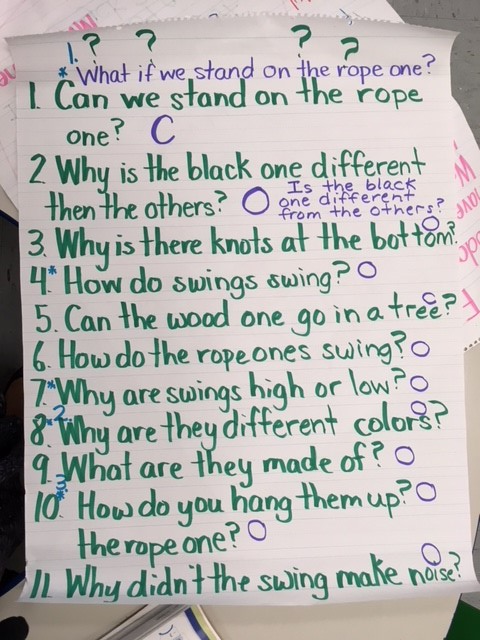 ? ? ? ?
1.
* What if we stand on the rope one?
1. Can we stand on the rope
one? C
2 Why is the black one different
then the others? O Is the black
one different
from the others?
3. Why is there knots at the bottom? O
4.* How do swings swing? O
5. Can the wood one go in a tree? C
6. How do the rope ones swing? O
7.* Why are swings high or low? O
2
8. Why are they different colors? O
9. What are they made of? O
3
10.* How do you hang them up? O
the rope one? O
11. Why didn't the swing make noise? O